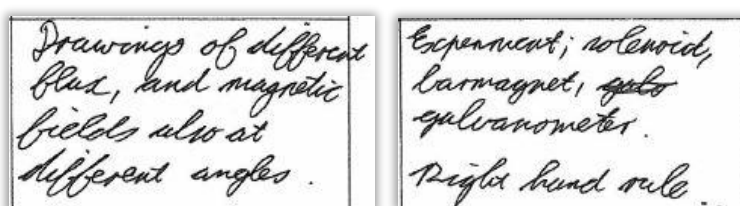 Drawings of different
flux, and magnetic
fields also at
different angles.
Experiment; solenoid,
barmagnet,
galvanometer.
Right hand rule